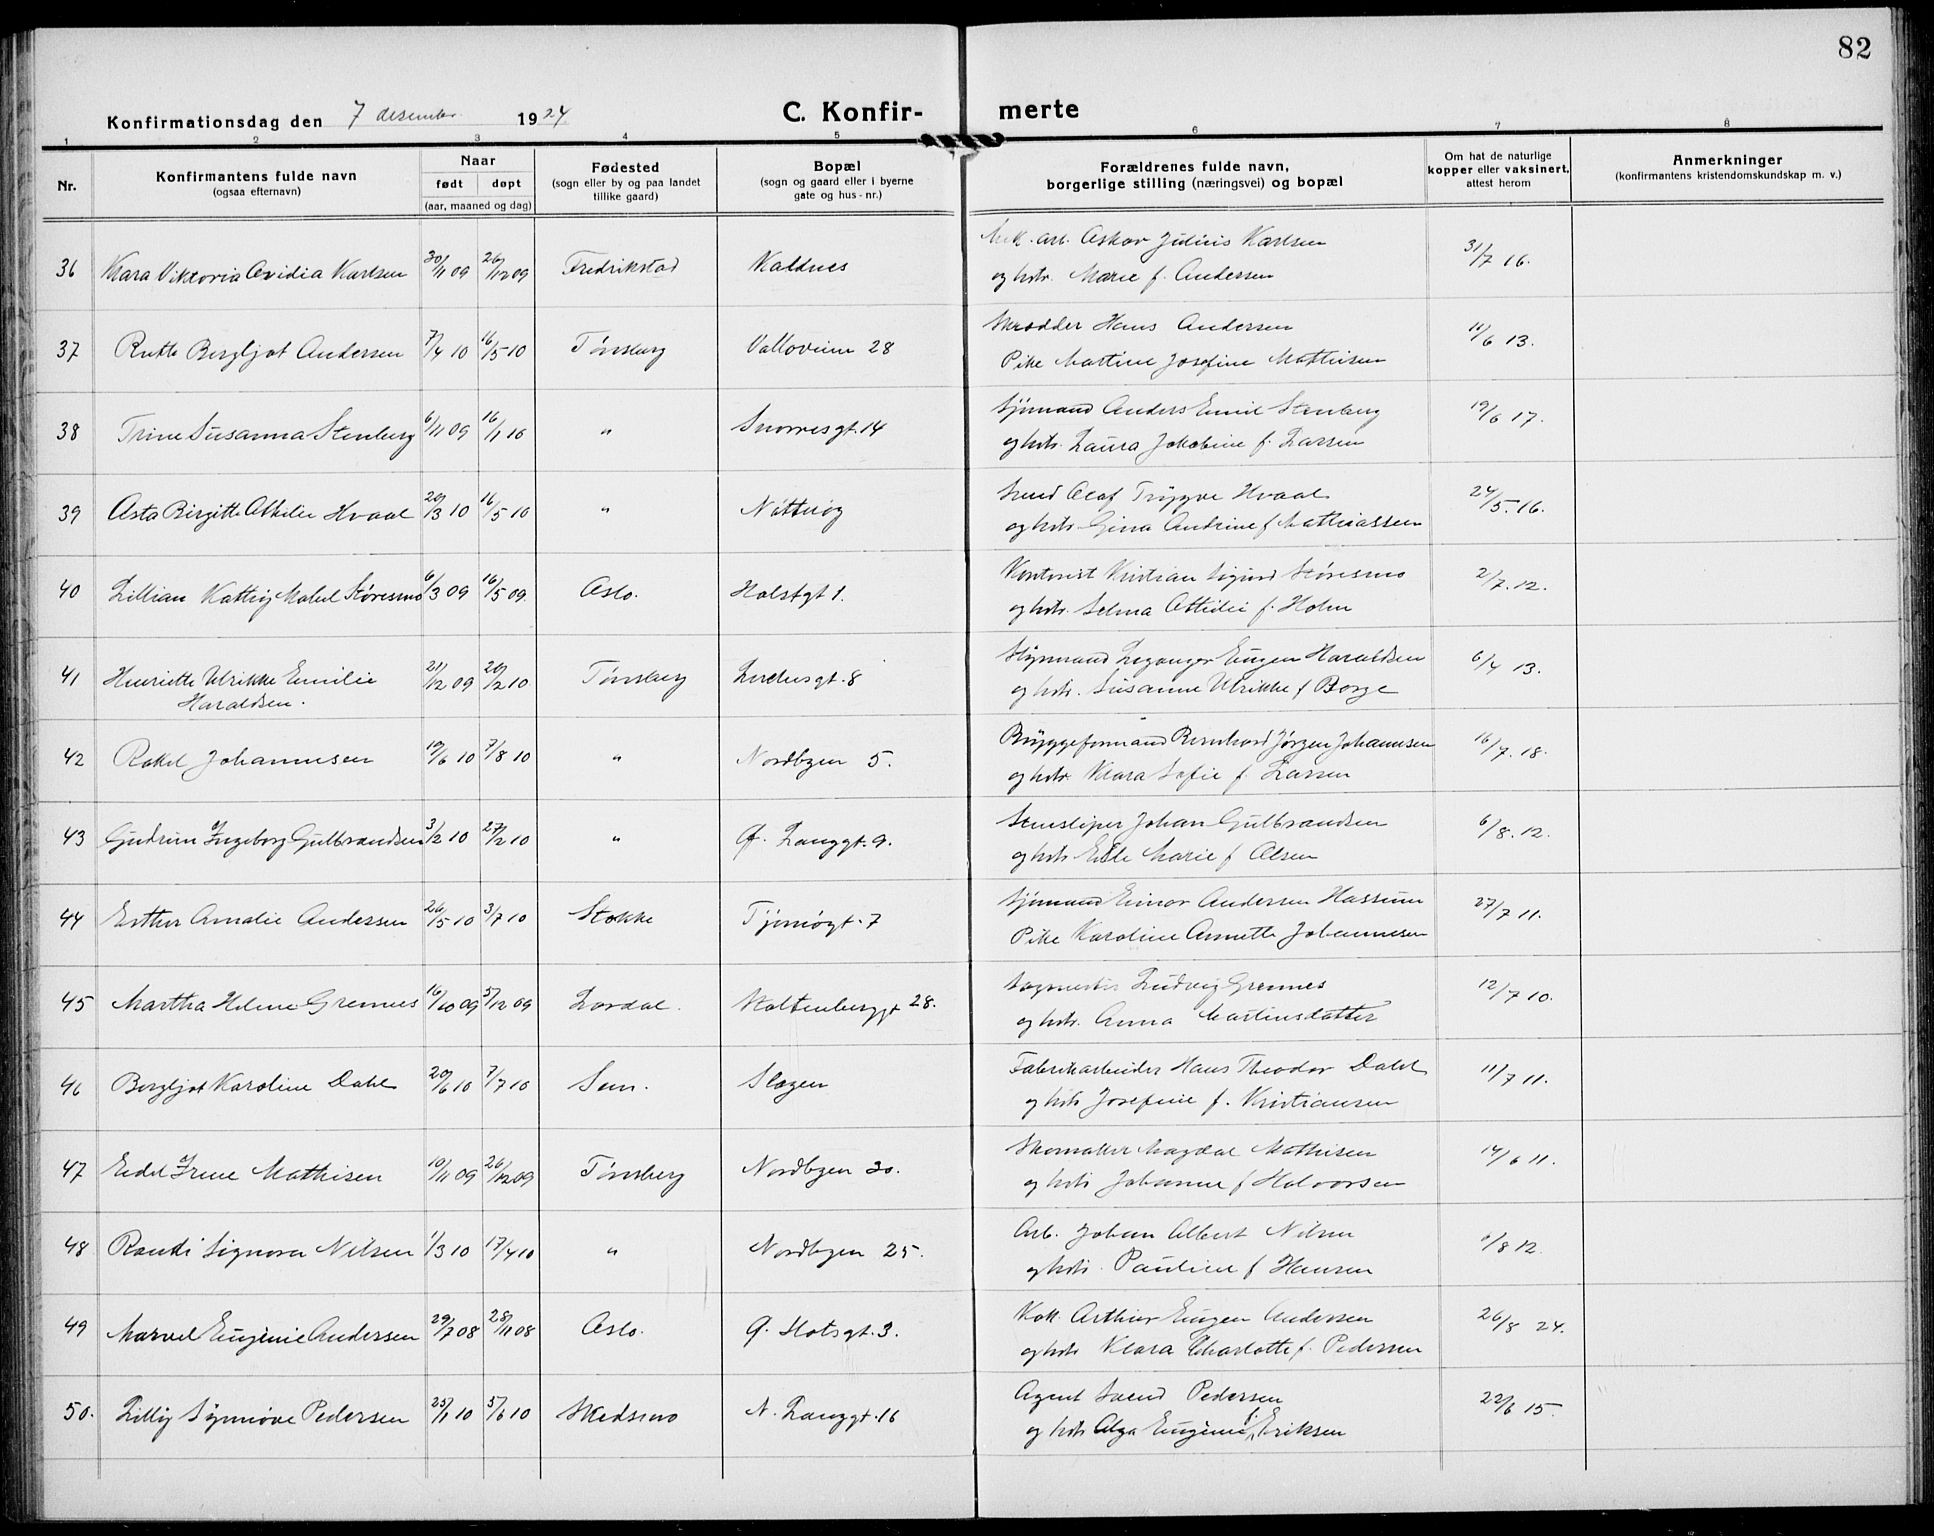 82
Konfirmationsdag den 7 desember 1924
C. Konfir- merte
1 2 3 4 5 6 7 8
Nr.
Konfirmantens fulde navn
(ogsaa efternavn)
Naar
født døpt
(aar, maaned og dag)
Fødested
(sogn eller by og paa landet
tillike gaard)
Bopæl
(sogn og gaard eller i byerne
gate og hus-nr.)
Forældrenes fulde navn,
borgerlige stilling (næringsvei) og bopæl
Om hat de naturlige
kopper eller vaksinert,
attest herom
Anmerkninger
(konfirmantens kristendomskundskap m. v.)
36 Klara Viktoria Ovidia Karlsen 30/11 09 26/12 09 Fredrikstad Kaldnes
Mek. arb. Oskar Julius Karlsen
og hstr. Marie f. Andersen
31/7 16.
37 Ruth Bergljot Andersen 7/4 10 16/5 10 Tønsberg Valloveien 28
Skrædder Hans Andersen
Pike Martine Josefine Mathisen
11/6 13.
38 Trine Susanna Stenberg 6/11 09 16/1 10 " Snorresgt. 14
Sjømand Anders Emil Stenberg
og hstr. Laura Jakobine f. Larsen
19/6 17.
39 Asta Birgitte Othilie Hvaal 20/3 10 16/5 10 " Nøtterøy
Smed Olaf Trygve Hvaal
og hstr. Gina Andrine f Mathiassen
24/5. 16.
40 Lillian Mabel Støresmo 6/3 09 16/5 09. Oslo. Holstgt 1.
Kontorist Kristian Sigurd Støresmo
og hstr. Selma Otilie f. Holm
2/7. 12.
41 Henriette Ulrikke Emilie
Haraldsen. 21/12 09 20/2 10 Tønsberg Lerchesgt. 8
Styrmand Eugen Haraldsen
og hstr. Susanne Ulrikke f Borge
6/4 13.
42 Rakel Johannesen 19/6 10 7/8 10 " Nordbyen 5.
Bryggeformand Bernhard Jørgen Johannesen
og hstr Klara Sofie f. Larsen
16/7. 18.
43 Gudrun Ingeborg Gulbrandsen 3/2 10 27/2 10 " Ø. Langgt. 9.
Stensliper Johan Gulbrandsen
og hstr Elle Marie f Olsen
6/8. 12.
44 Esther Amalie Andersen 26/5 10 3/7 10 Stokke Tjømøgt. 7
Sjømand Einar Andersen Hassum
Pike Karoline Annette Johannesen
27/7 11.
45 Martha Helene Grennes 16/10 09 5/12 09 Lardal. Stoltenberggt 28.
Sagmester Ludvig Grennes
og hstr. Anna Martinsdatter
12/7 10.
46 Bergljot Karoline Dahl 20/6 10 7/7 10 Sem. Slagen
Fabrikarbeider Hans Theodor Dahl
og hstr Josefine f. Kristiansen
11/7 11.
47 Edel Irene Mathisen 10/11 09 26/12 09 Tønsberg Nordbyen 30.
Skomaker Magdal Mathisen
og hstr Johanne f Halvorsen
14/6 11.
48 Randi Signora Nilsen 1/3 10 17/4 10 " Nordbyen 25.
Arb. Johan Albert Nilsen
og hstr. Pauline f Hansen
/8 12.
49 Marvel Eugenie Andersen 29/7 08 28/11 08 Oslo. Ø. Slotsgt. 3.
Kok Arthur Eugen Andersen
og hstr Klara Charlotte f. Pedersen
26/8 24.
50. Lilly Synnøve Pedersen 25/1 10 5/6 10 Skedsmo N. Langgt. 16
Agent Svend Pedersen
og hstr Olga Eugenie f. Eriksen
22/6 15.